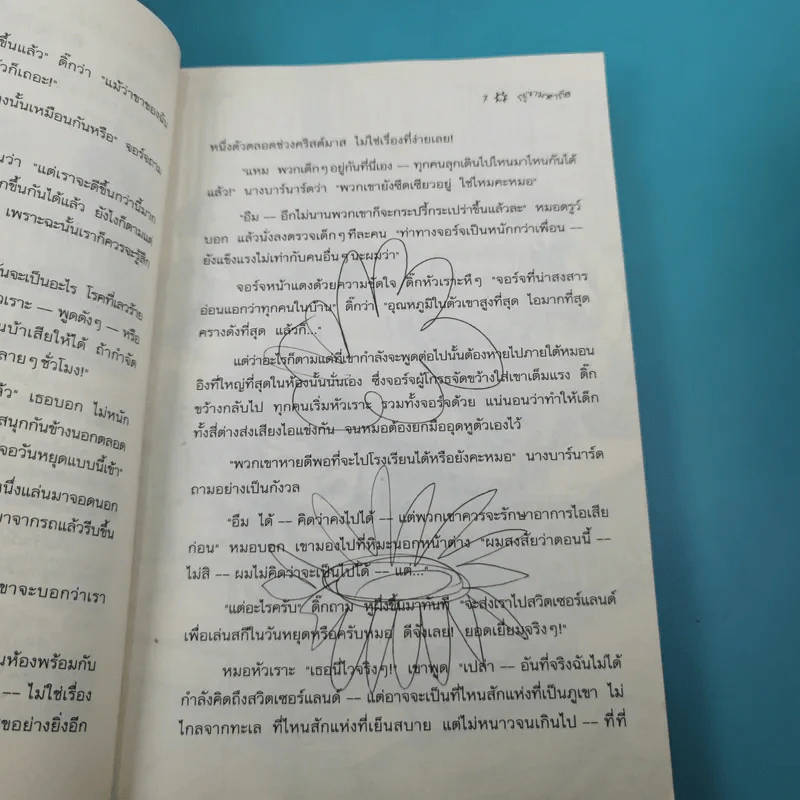 ขึ้นแล้ว" ดิ๊กว่า "แม้ว่าขาของฉัน
ก็เถอะ!"
นั้นเหมือนกันหรือ" จอร์จถาม
ว่า "แต่เราจะดีขึ้นกว่านี้มาก
ขึ้นกันได้แล้ว ยังไงก็ตามแต่
เพราะฉะนั้นเราก็ควรจะรู้สึก
จะเป็นอะไร โรคที่เลวร้าย
— พูดดังๆ — หรือ
บ้าเสียให้ได้ ถ้ากำจัด
ลายๆ ชั่วโมง!"
เธอบอก ไม่หนัก
สนุกกันข้างนอกตลอด
จอวันหยุดแบบนี้เข้า"
นึ่งแล่นมาจอดนอก
าจากรถแล้วรีบขึ้น
ขาจะบอกว่าเรา
ห้องพร้อมกับ
-- ไม่ใช่เรื่อง
ขอย่างยิ่งอีก
หนึ่งตัวตลอดช่วงคริสต์มาส ไม่ใช่เรื่องที่ง่ายเลย!
"แหม พวกเด็กๆ อยู่กันที่นี่เอง -- ทุกคนลุกเดินไปไหนมาไหนกันได้
แล้ว!" นางบาร์นาร์ดว่า "พวกเขายังซีดเซียวอยู่ ใช่ไหมคะหมอ"
"อืม -- อีกไม่นานพวกเขาก็จะกระปรี้กระเปร่าขึ้นแล้วละ" หมอดรูว์
บอก แล้วนั่งลงตรวจเด็กๆ ทีละคน "ท่าทางจอร์จเป็นหนักกว่าเพื่อน --
ยังแข็งแรงไม่เท่ากับคนอื่นๆ นะผมว่า"
จอร์จหน้าแดงด้วยความขัดใจ ดิ๊กหัวเราะหึๆ "จอร์จที่น่าสงสาร
อ่อนแอกว่าทุกคนในบ้าน" ดิ๊กว่า "อุณหภูมิในตัวเขาสูงที่สุด ไอมากที่สุด
ครางดังที่สุด แล้วก็..."
แต่ว่าอะไรก็ตามแต่ที่เขากำลังจะพูดต่อไปนั้นต้องหายไปภายใต้หมอน
อิงที่ใหญ่ที่สุดในห้องนั้นนั่นเอง ซึ่งจอร์จผู้โกรธจัดขว้างใส่เขาเต็มแรง ดิ๊ก
ขว้างกลับไป ทุกคนเริ่มหัวเราะ รวมทั้งจอร์จด้วย แน่นอนว่าทำให้เด็ก
ทั้งสี่ต่างส่งเสียงไอแข่งกัน จนหมอต้องยกมืออุดหูตัวเองไว้
"พวกเขาหายดีพอที่จะไปโรงเรียนได้หรือยังคะหมอ" นางบาร์นาร์ด
ถามอย่างเป็นกังวล
"อืม ได้ -- คิดว่าคงไปได้ -- แต่พวกเขาควรจะรักษาอาการไอเสีย
ก่อน" หมอบอก เขามองไปที่หิมะนอกหน้าต่าง "ผมสงสัยว่าตอนนี้ --
ไม่สิ -- ผมไม่คิดว่าจะเป็นไปได้ -- แต่..."
"แต่อะไรครับ" ดิ๊กถาม หูผึ่งขึ้นมาทันที "จะส่งเราไปสวิตเซอร์แลนด์
เพื่อเล่นสกีในวันหยุดหรือครับหมอ ดีจังเลย! ยอดเยี่ยมจริงๆ!"
หมอหัวเราะ "เธอนี่ไวจริงๆ!" เขาพูด "เปล่า -- อันที่จริงฉันไม่ได้
กำลังคิดถึงสวิตเซอร์แลนด์ -- แต่อาจจะเป็นที่ไหนสักแห่งที่เป็นภูเขา ไม่
ไกลจากทะเล ที่ไหนสักแห่งที่เย็นสบาย แต่ไม่หนาวจนเกินไป -- ที่ที่